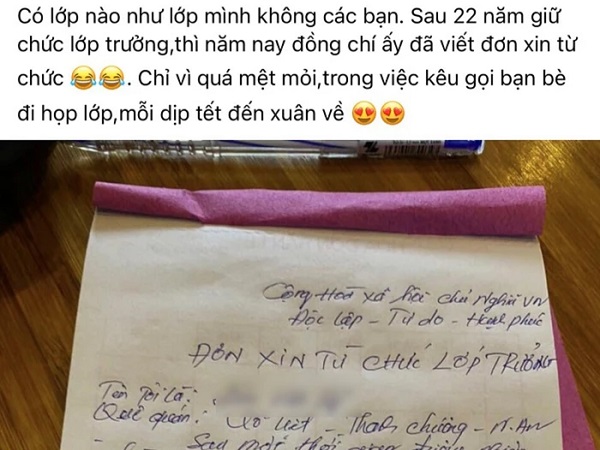 Có lớp nào như lớp mình không các bạn. Sau 22 năm giữ
chức lớp trưởng,thì năm nay đồng chí ấy đã viết đơn xin từ
chức 😂😂. Chỉ vì quá mệt mỏi,trong việc kêu gọi bạn bè
đi họp lớp,mỗi dịp tết đến xuân về 😍😍
Cộng Hoà xã hội chủ Nghĩa VN
Độc lập - Tự do - Hạnh phúc
ĐƠN XIN TỪ CHỨC LỚP TRƯỞNG
Tên tôi là:
Quê quán: - Thanh chương - N.An
Sau một thời gian